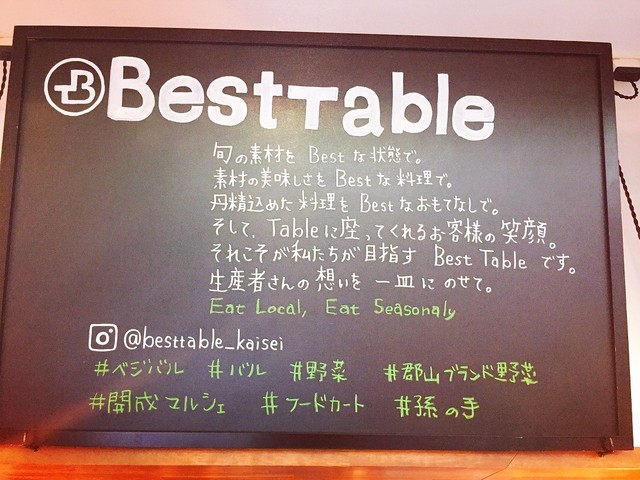 B BestTable
旬の素材を Best な状態で。
素材の美味しさを Best な料理で。
丹精込めた料理を Best なおもてなしで。
そして、Table に座ってくれるお客様の笑顔。
それこそが私たちが目指す Best Table です。
生産者さんの想いを一皿にのせて。
Eat Local, Eat Seasonaly
@besttable_kaisei
#ベジバル #バル #野菜 #郡山ブランド野菜
#開成マルシェ #フードカート #孫の手